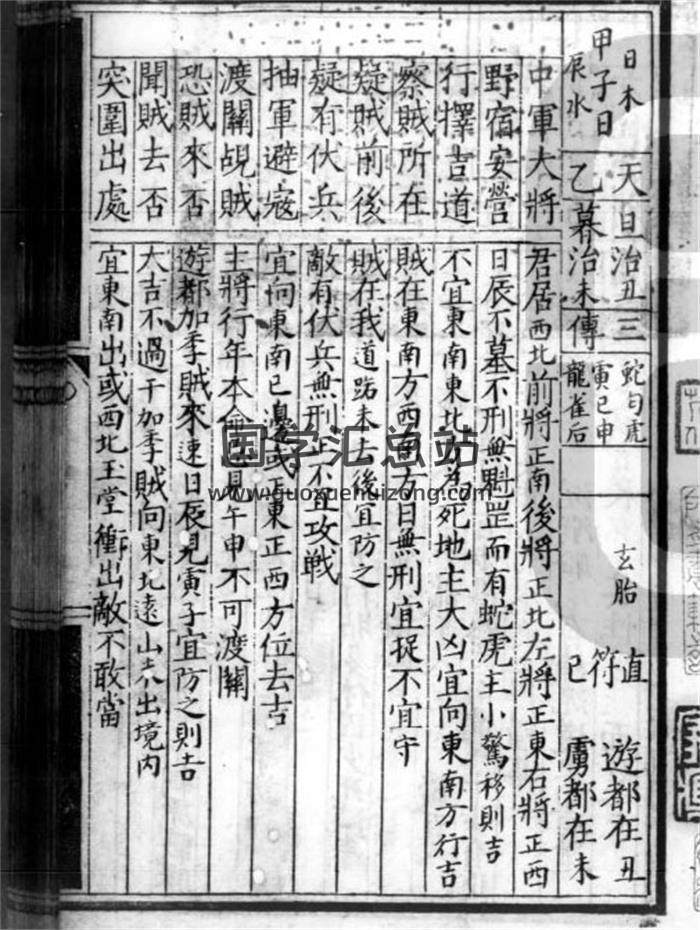 日木
甲子日
辰水
天旦治丑三
乙暮治未傳
蛇勾虎
寅巳申
龍雀后
玄胎
直
符
巳
遊都在丑
虜都在未
中軍大將
君居西北前將正南後將正北左將正東右將正西
野宿安營
日辰不墓不刑無魁罡而有蛇虎主小驚移則吉
行擇吉道
不宜東南東北方為死地主大凶宜向東南方行吉
察賊所在
賊在東南方西南方日無刑宜捉不宜守
疑賊前後
賊在我道路未去後宜防之
疑有伏兵
敵有伏兵無刑不宜攻戰
抽軍避寇
宜向東南巳邊或正東正西方位去吉
渡關覘賊
主將行年本命見午申不可渡關
恐賊來否
遊都加季賊來速日辰見寅子宜防之則吉
聞賊去否
太吉不過干加季賊向東北遠山未出境內
突圍出處
宜東南出或西北玉堂衝出敵不敢當
国学汇总站
www.guoxuehuizong.com